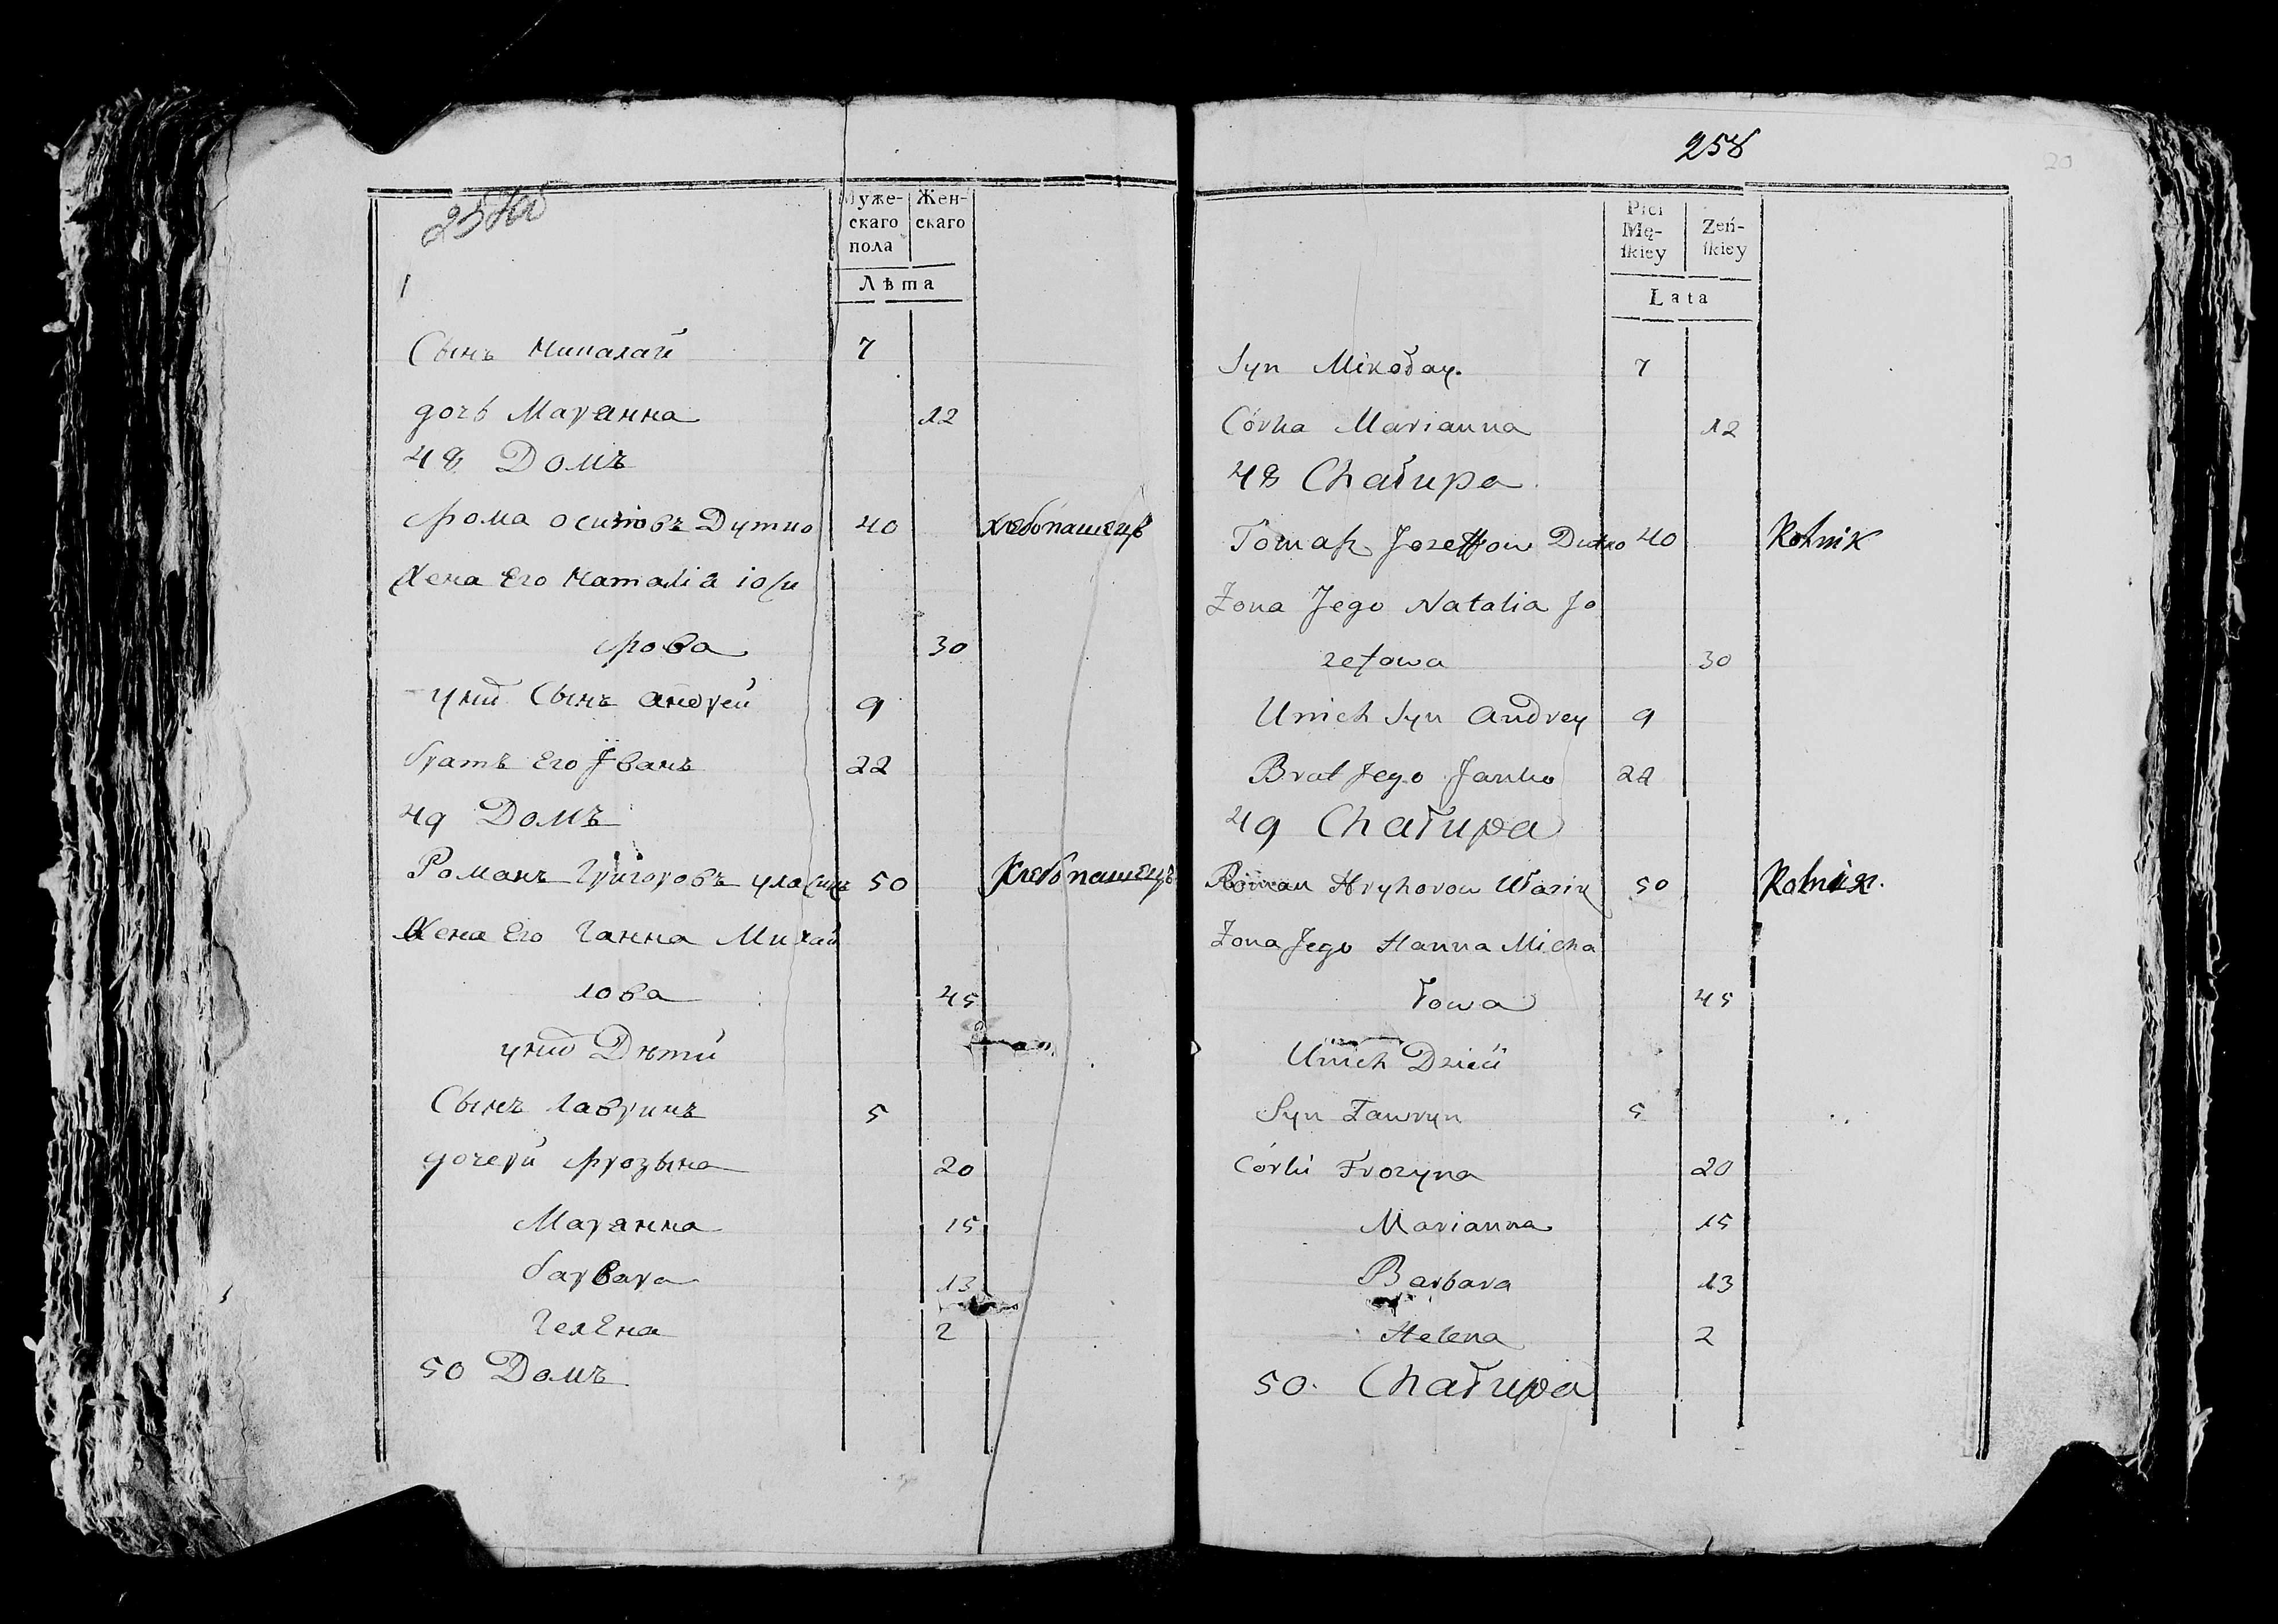 257об
Муже- Жен-
скаго скаго
пола
Лѣта
Сынъ Николай 7
дочь Маранна 12
48 Домъ
Фома осиповъ Дутко 40 хлебопашецъ
Жена Его Наталіа іози
фова 30
у нихъ Сынъ андрей 9
братъ Его Jванъ 22
49 Домъ
Романъ Григоровъ уласикъ 50 Хлебопашецъ
Жена Его Ганна Михай
лова 45
у нихъ Дѣти
Сынъ лавринъ 5
дочери фрозына 20
Маранна 15
барвара 13
ГелЕна 2
50 Домъ
258
20
Płci Żeń-
Mę- ſkiey
ſkiey
Lata
Syn Mikołay. 7
Córka Marianna 12
48 Chałupa
Tomaſz Jozeffow Dutko 40 Rolnik
Żona Jego Natalia Jo
zefowa 30
U nich Syn Andrey 9
Brat Jego Janko 22
49 Chałupa
Roman Hryhorow Ułasik 50 Rolnik.
Żona Jego Hanna Micha
łowa 45
U nich Dzieci
Syn Ławryn 5
Córki Frozyna 20
Marianna 15
Barbara 13
Helena 2
50. Chałupa